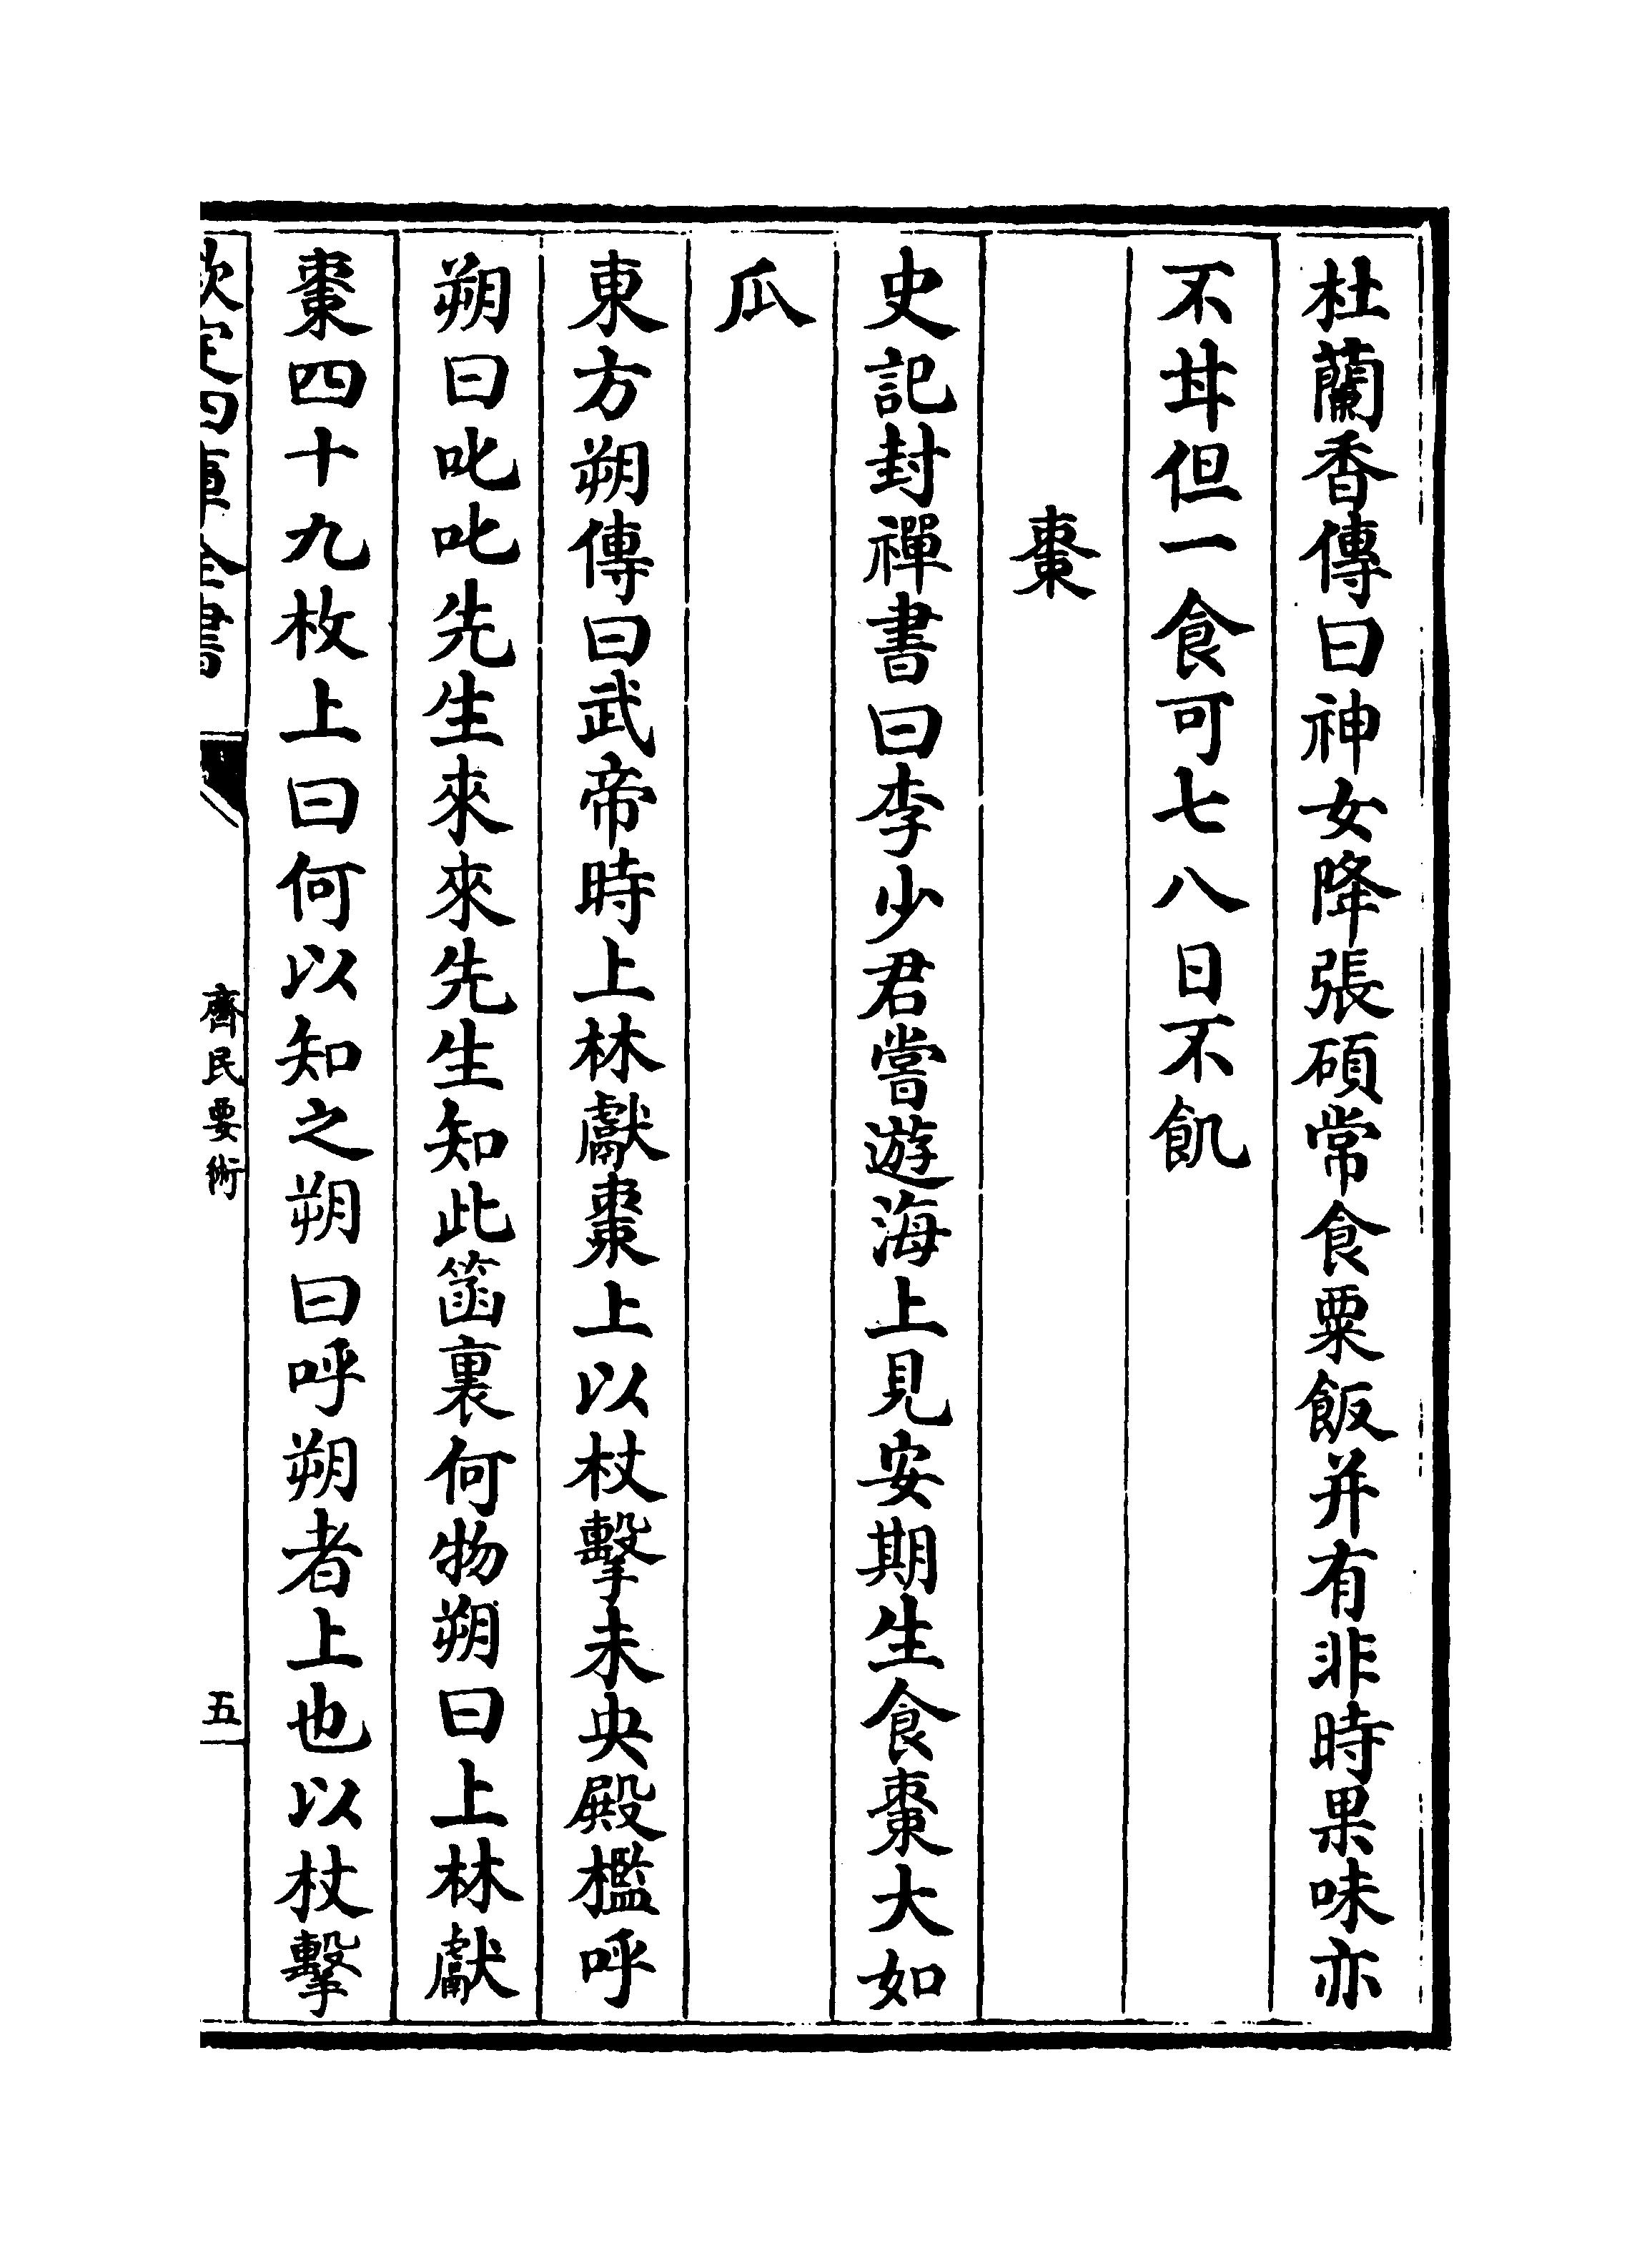 杜蘭香傳曰神女降張碩常食粟飯并有非時果味亦
不甘但一食可七八日不飢
棗
史記封禪書曰李少君嘗遊海上見安期生食棗大如
瓜
東方朔傳曰武帝時上林獻棗上以杖擊未央殿檻呼
朔曰叱叱先生來來先生知此箧裏何物朔曰上林獻
棗四十九枚上曰何以知之朔曰呼朔者上也以杖擊
欽定四庫全書
齊民要術
五